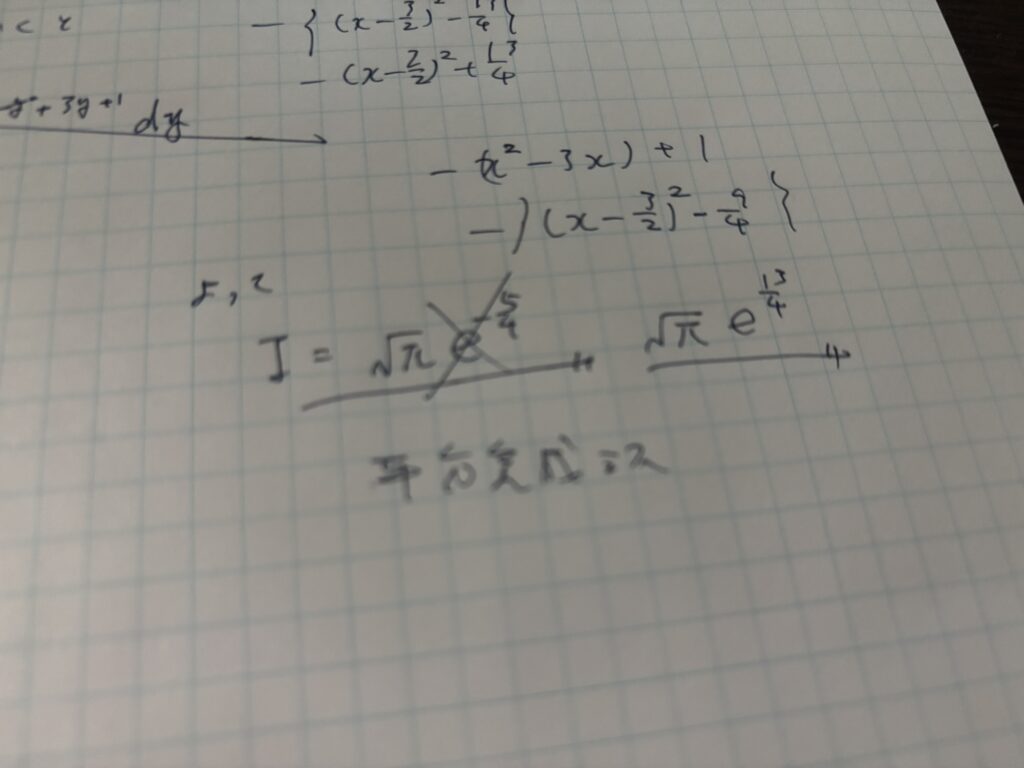 < x
- { (x - 3/2)² - 13/4 }
- (x - 2/2)² + 13/4
-y² + 3y + 1 dy
- (x² - 3x) + 1
- { (x - 3/2)² - 9/4 }
5, 2
I = √π e^{-5/4} √π e^{13/4}
平方完成ミス